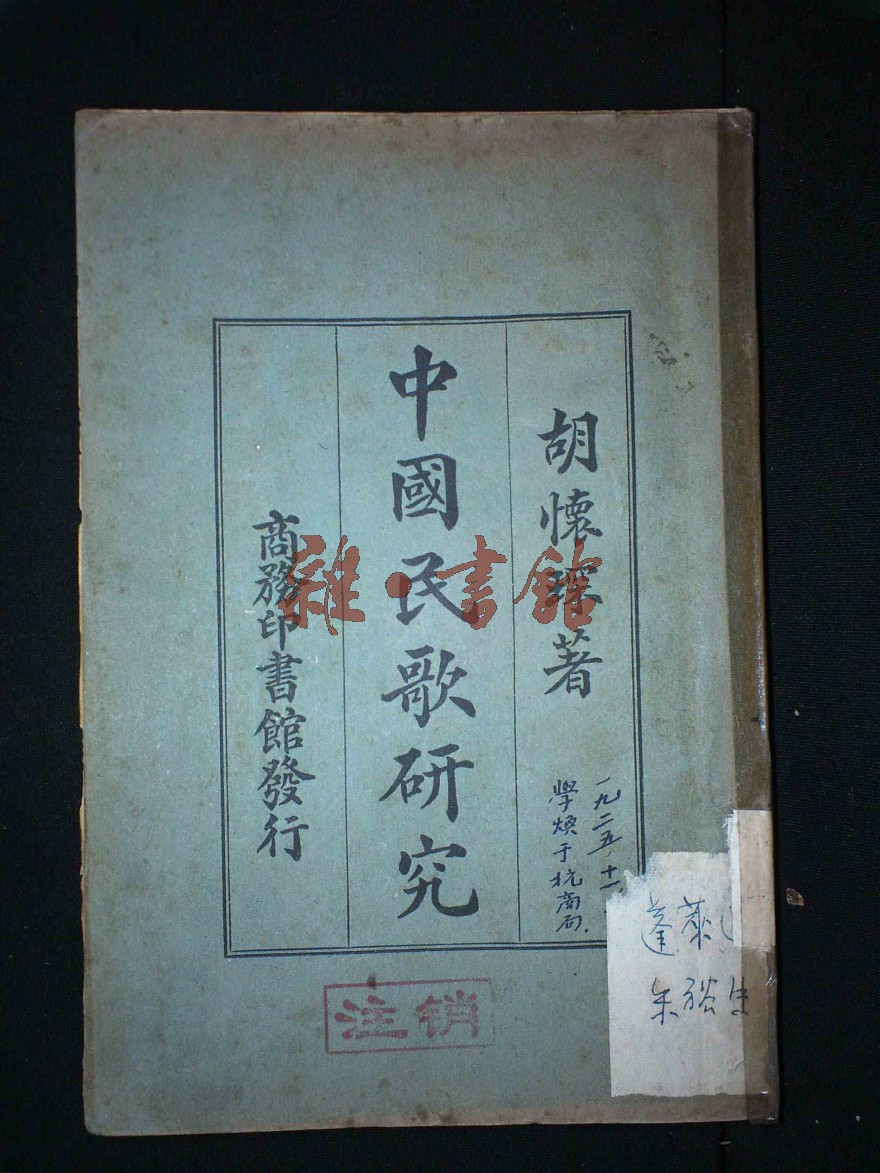 胡懷琛著
中國民歌研究
商務印書館發行
一九二五、十一
學煥于杭商
雜·書館
注销
蓬萊
朱裕